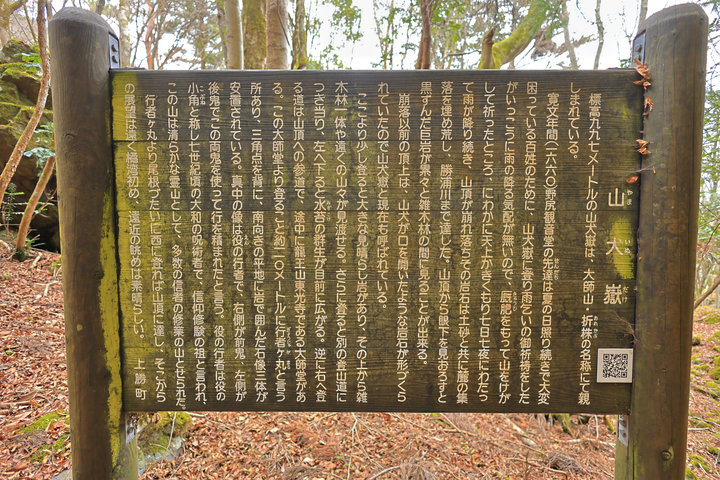 山犬嶽
やま
いぬ
だけ
標高九九七メートルの山犬嶽は、大師山、折株の名称にて親
おれかぶ
しまれている。
寛文年間(一六六〇)野尻観音堂の先達は夏の日照り続きで大変
困っている百姓のために、山犬嶽に登り雨乞いの御祈祷をした
がいっこうに雨の降る気配が無いので、辰肥をもって山をけが
して祈ったところ、にわかに天上かきくもり七日七夜にわたっ
て雨が降り続き、山頂が崩れ落ちその岩石は土砂と共に麓の集
落を埋め尽し、勝浦川まで達した。山頂から眼下を見おろすと
黒ずんだ巨岩が累々と雑木林の間に見ることが出来る。
崩落以前の頂上は、山犬が口を開いたような岩石が形づくら
れていたので山犬嶽と現在も呼ばれている。
ここより少し登ると大きな見晴らし岩があり、その上から雑
木林一体や遠くの山々が見渡せる。さらに登ると別の登山道に
つき当り、左へ下ると水苔の群生が目前に広がる。逆に右へ登
る道は山頂への参道で、途中に龍王山東光寺である大師堂があ
る。この大師堂より登ること約二〇〇メートルに行者ヶ丸と言う
ぎょうじゃがまる
所あり、三角点を背に、南向きの平地に岩で囲んだ石像三体が
安置されている。真中の像は役の行者で、右側が前鬼、左側が
後鬼でこの両鬼を使って行を積まれたと言う。役の行者は役の
小角と称し七世紀頃の大和の呪術者で、信仰修験の祖と言われ、
この山は清らかな霊山として、多数の信者の修業の山とせられた。
行者ヶ丸より尾根づたいに西に登れば山頂に達し、そこから
の展望は遠く橘湾初め、遠近の眺めは素晴らしい。
上勝町